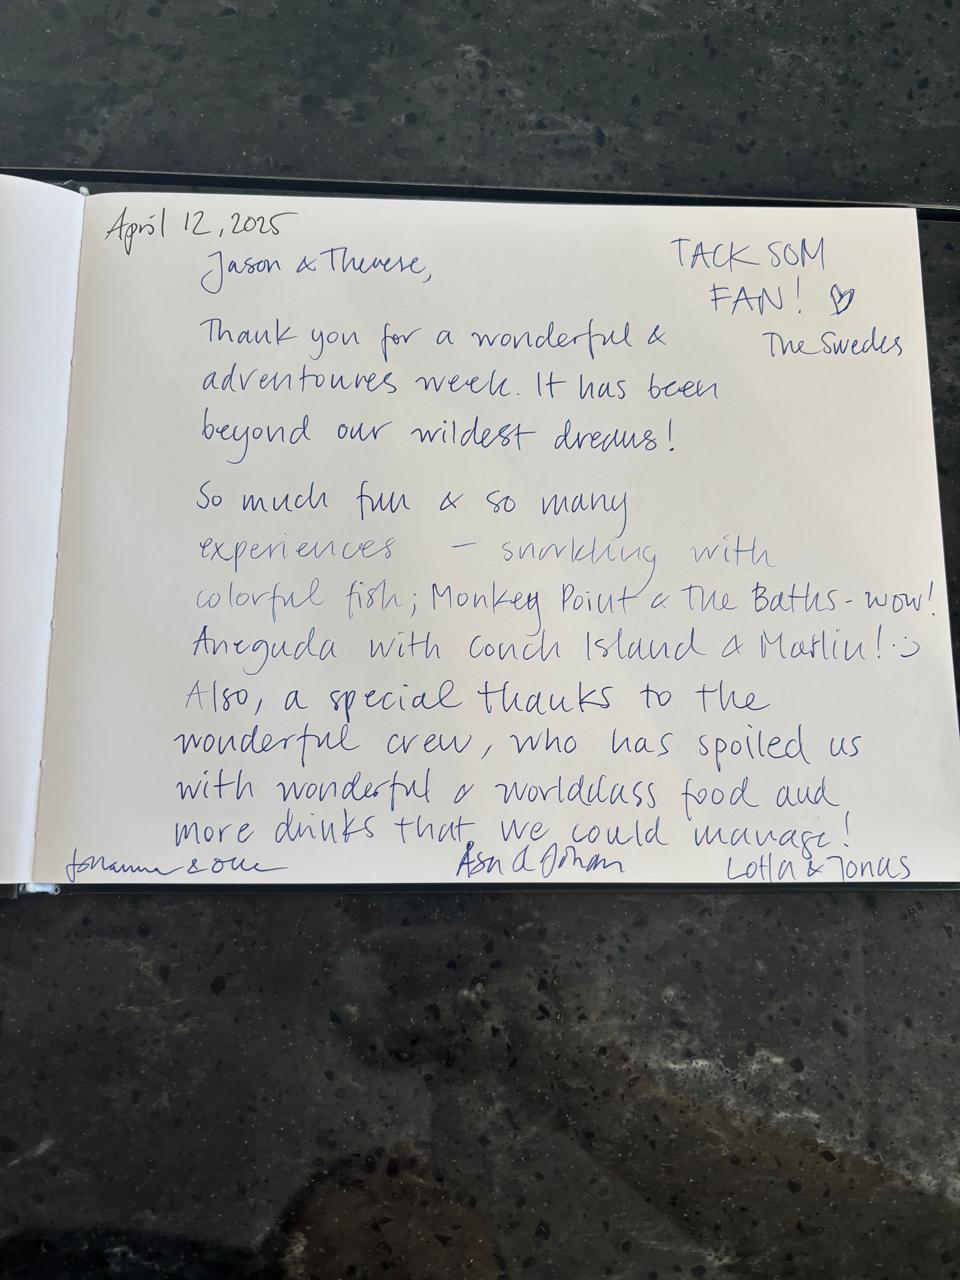 April 12, 2025
Jason & Therese,
TACK SOM
FAN! ♡
The Swedes
Thank you for a wonderful &
adventoures week. It has been
beyond our wildest dreams!
So much fun & so many
experiences – snorkling with
colorful fish; Monkey Point & The Baths - wow!
Aneguda with Conch Island & Marlin! :)
Also, a special thanks to the
wonderful crew, who has spoiled us
with wonderful & worldclass food and
more drinks that we could manage!
Johanna & Olle
Åsa & Johan
Lotta & Jonas